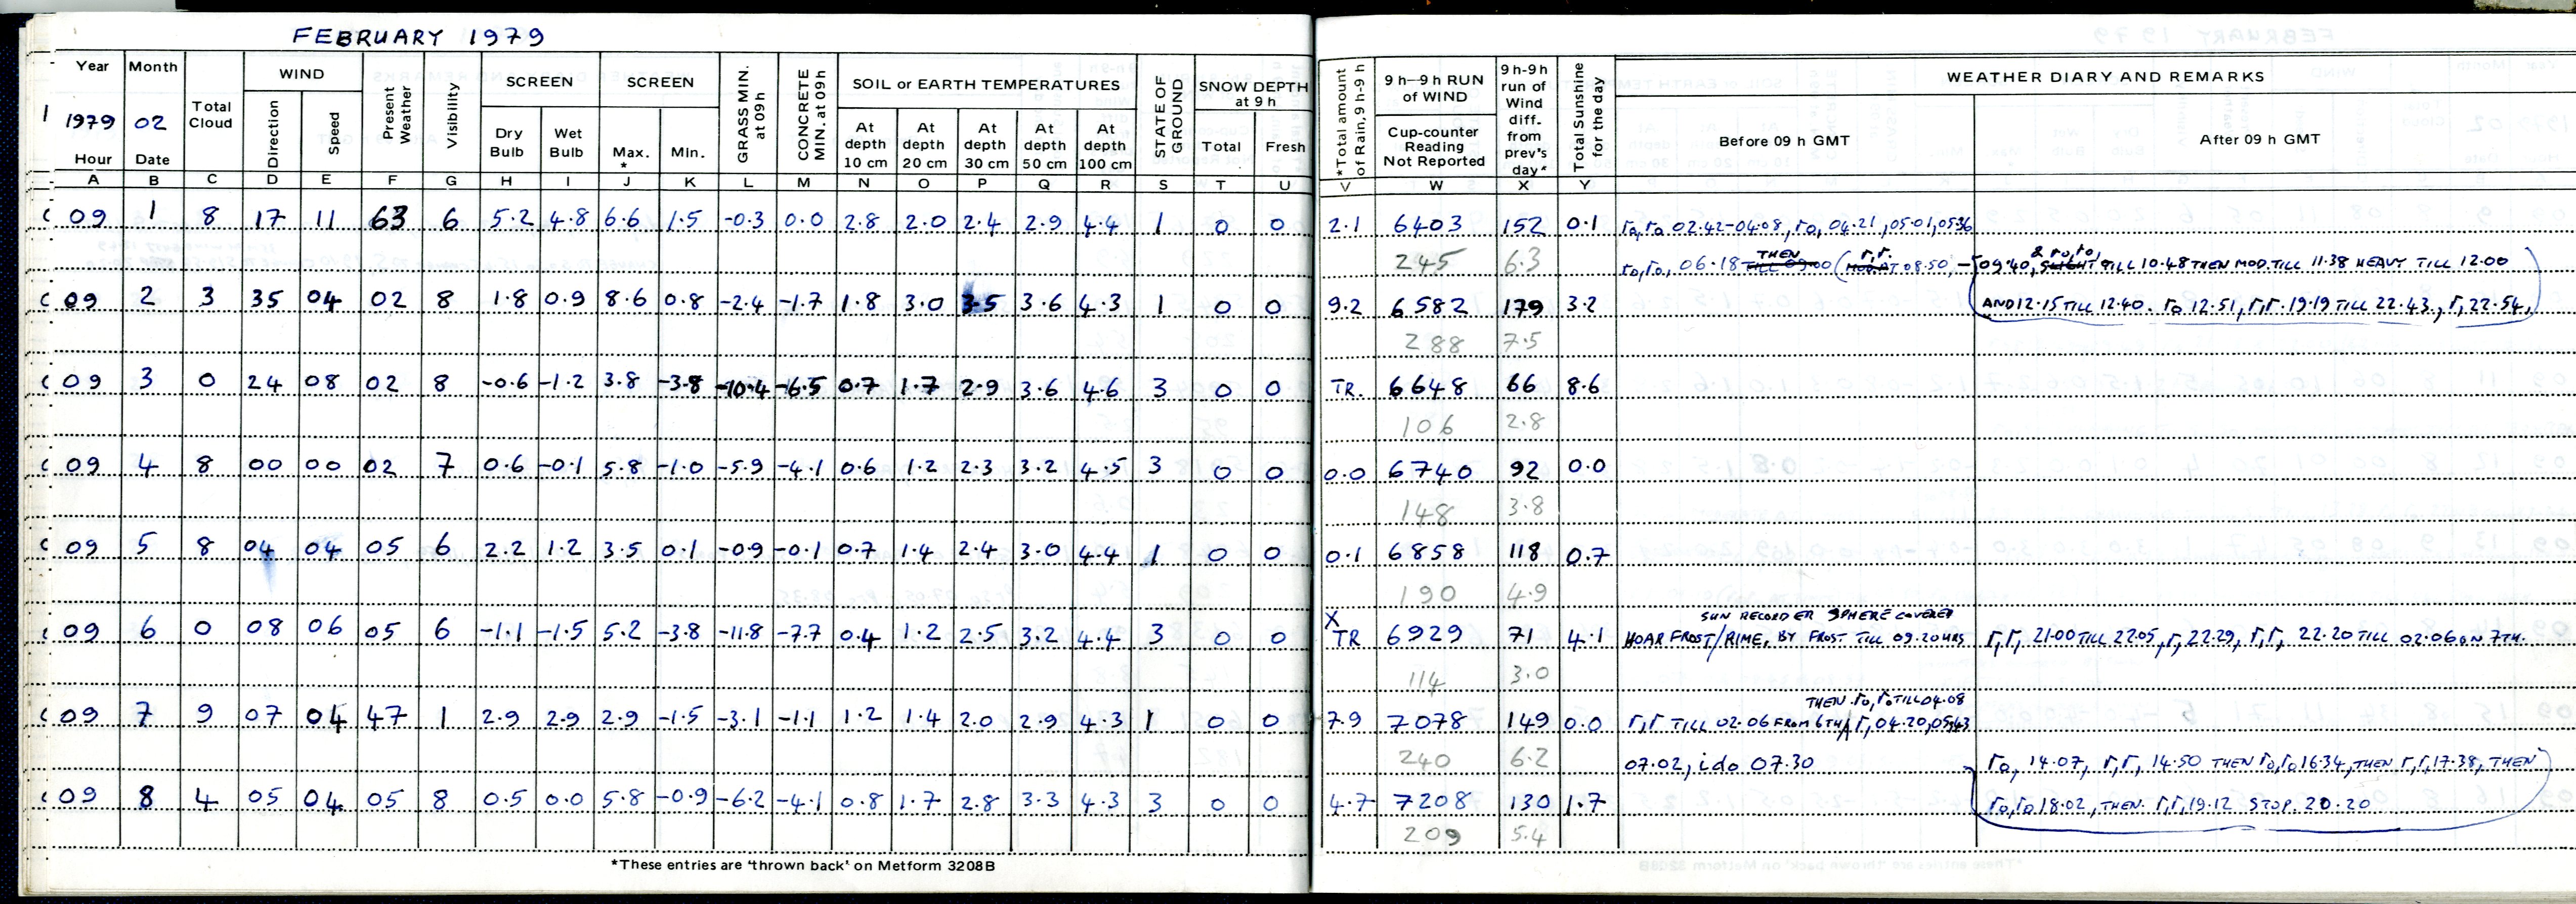 FEBRUARY 1979
Year Month Total Cloud WIND Present Weather Visibility SCREEN SCREEN GRASS MIN. at 09h CONCRETE MIN. at 09h SOIL or EARTH TEMPERATURES STATE OF GROUND SNOW DEPTH at 9 h *Total amount of Rain, 9h-9h 9 h—9 h RUN of WIND 9 h-9h run of Wind diff. from prev's day* Total Sunshine for the day WEATHER DIARY AND REMARKS
1 1979 02 Direction Speed Dry Bulb Wet Bulb Max. * Min. At depth 10 cm At depth 20 cm At depth 30 cm At depth 50 cm At depth 100 cm Total Fresh Cup-counter Reading Not Reported Before 09 h GMT After 09 h GMT
Hour Date
A B C D E F G H I J K L M N O P Q R S T U V W X Y
09 1 8 17 11 63 6 5.2 4.8 6.6 1.5 -0.3 0.0 2.8 2.0 2.4 2.9 4.4 1 0 0 2.1 6403 152 0.1 ro,ro 02.42-04.08, ro, 04.21, 05.01, 05.36
245 6.3 ro,ro, 06.18 THEN TILL 09.00 (r,r. 08.50, - 09.40, & ro,ro, SLIGHT TILL 10.48 THEN MOD. TILL 11.38 HEAVY TILL 12.00
09 2 3 35 04 02 8 1.8 0.9 8.6 0.8 -2.4 -1.7 1.8 3.0 3.5 3.6 4.3 1 0 0 9.2 6582 179 3.2 AND 12.15 TILL 12.40. ro 12.51, r,r. 19.19 TILL 22.43., r, 22.54,
288 7.5
09 3 0 24 08 02 8 -0.6 -1.2 3.8 -3.8 -10.4 -6.5 0.7 1.7 2.9 3.6 4.6 3 0 0 TR. 6648 66 8.6
106 2.8
09 4 8 00 00 02 7 0.6 -0.1 5.8 -1.0 -5.9 -4.1 0.6 1.2 2.3 3.2 4.5 3 0 0 0.0 6740 92 0.0
148 3.8
09 5 8 04 04 05 6 2.2 1.2 3.5 0.1 -0.9 -0.1 0.7 1.4 2.4 3.0 4.4 1 0 0 0.1 6858 118 0.7
190 4.9
X SUN RECORDER SPHERE COVERED
09 6 0 08 06 05 6 -1.1 -1.5 5.2 -3.8 -11.8 -7.7 0.4 1.2 2.5 3.2 4.4 3 0 0 TR 6929 71 4.1 HOAR FROST/RIME, BY FROST TILL 09.20HRS r,r, 21.00 TILL 22.05, r, 22.29, r,r, 22.20 TILL 02.06 ON 7TH.
114 3.0
THEN ro,ro TILL 04.08
09 7 9 07 04 47 1 2.9 2.9 2.9 -1.5 -3.1 -1.1 1.2 1.4 2.0 2.9 4.3 1 0 0 7.9 7078 149 0.0 r,r TILL 02.06 FROM 6TH r, 04.20, 05.43
240 6.2 07.02, ido 07.30 ro, 14.07, r,r, 14.50 THEN ro,ro 16.34, THEN r,r, 17.38, THEN
09 8 4 05 04 05 8 0.5 0.0 5.8 -0.9 -6.2 -4.1 0.8 1.7 2.8 3.3 4.3 3 0 0 4.7 7208 130 1.7 ro,ro 18.02, THEN. r,r, 19.12 STOP. 20.20
209 5.4
*These entries are 'thrown back' on Metform 3208B